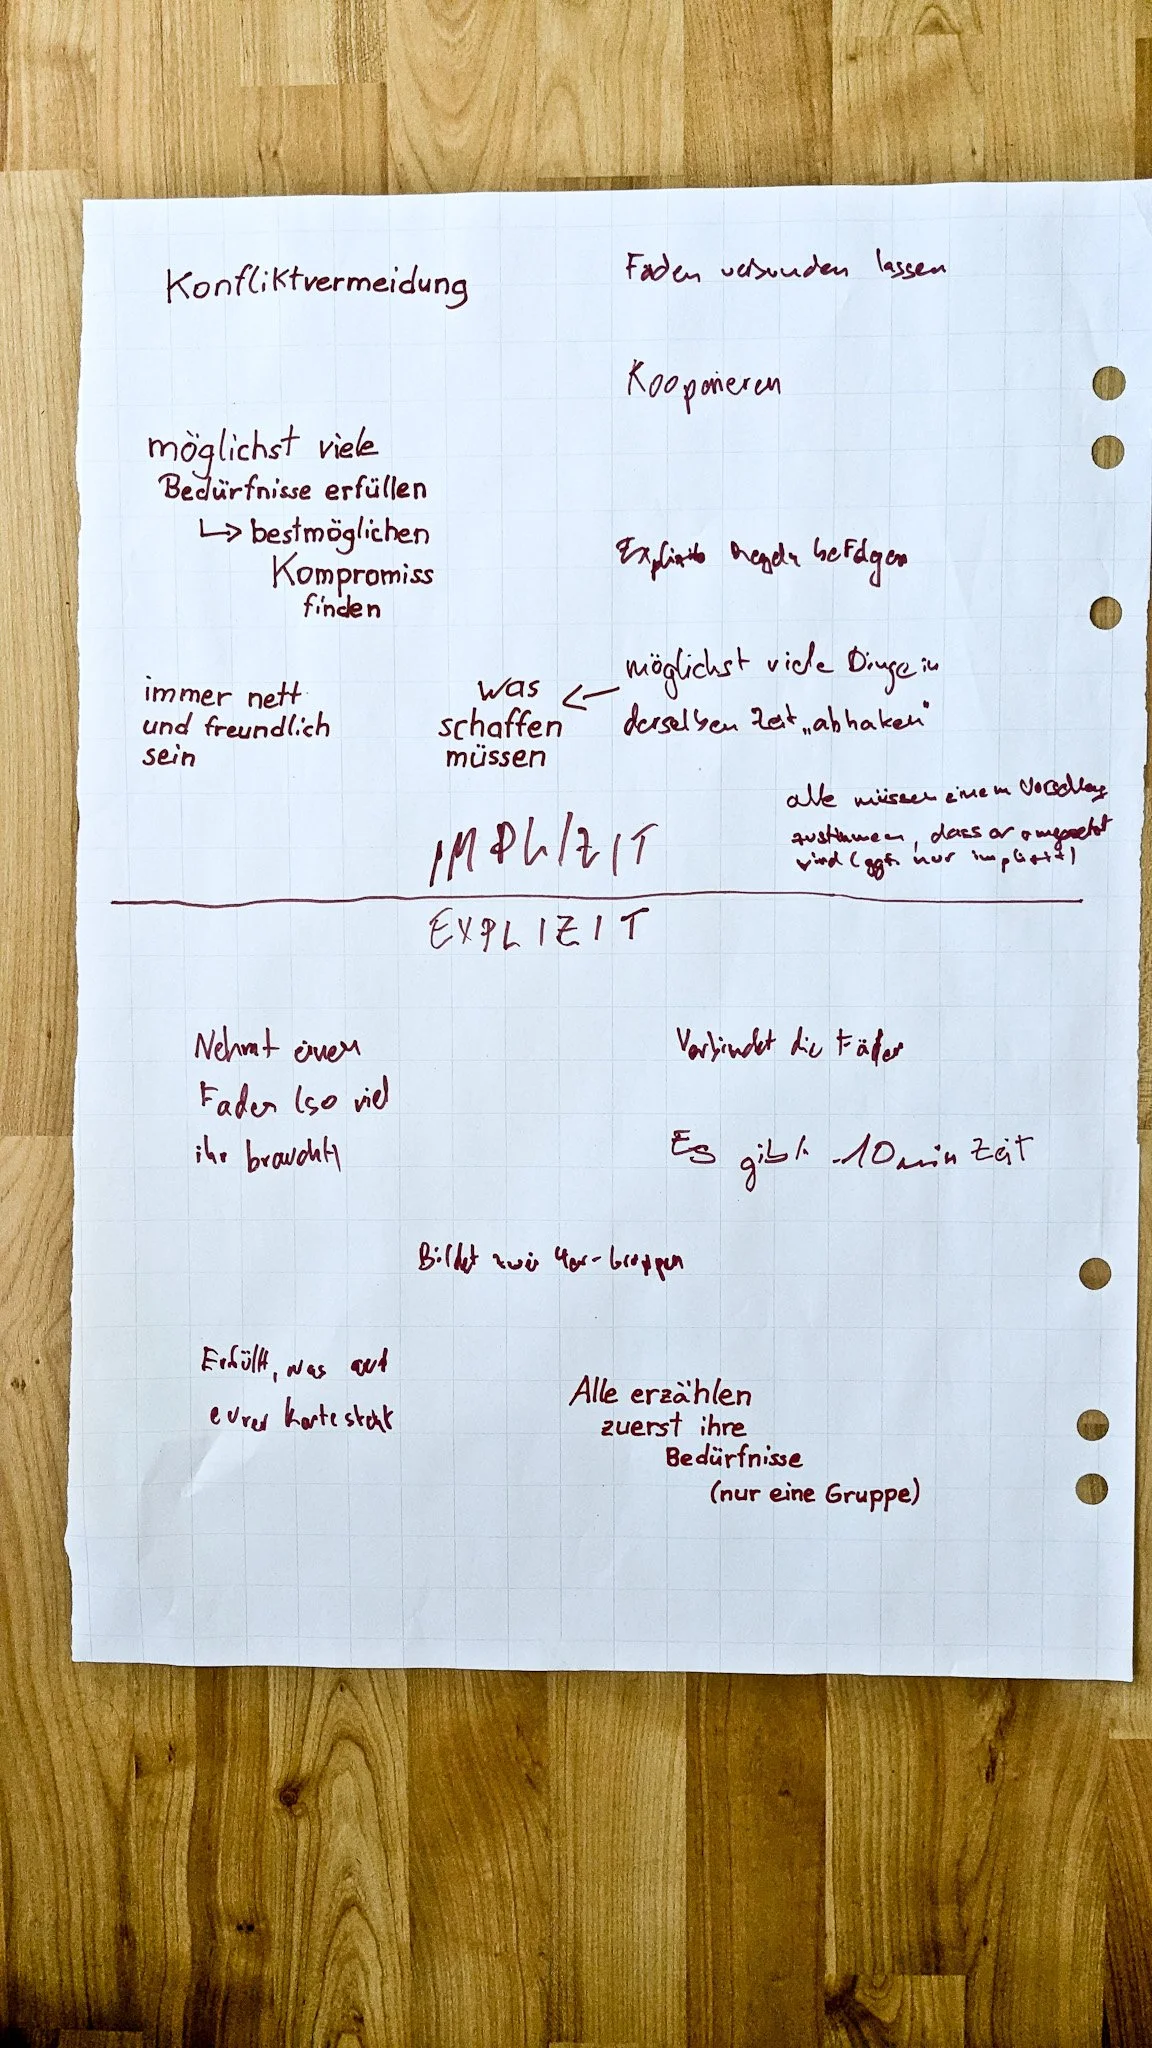 Konfliktvermeidung
Fäden verbunden lassen
Kooperieren
möglichst viele
Bedürfnisse erfüllen
↳ bestmöglichen
Kompromiss
finden
Explizite Regeln befolgen
möglichst viele Dinge in
derselben Zeit „abhaken"
immer nett
und freundlich
sein
was ←
schaffen
müssen
alle müssen einem Vorschlag
zustimmen, dass er umgesetzt
wird (ggf. nur implizit)
IMPLIZIT
EXPLIZIT
Nehmt einen
Faden (so viel
ihr braucht)
Verbindet die Fäden
Es gibt 10 min Zeit
Bildet zwei 4er-Gruppen
Erfüllt, was auf
eurer Karte steht
Alle erzählen
zuerst ihre
Bedürfnisse
(nur eine Gruppe)